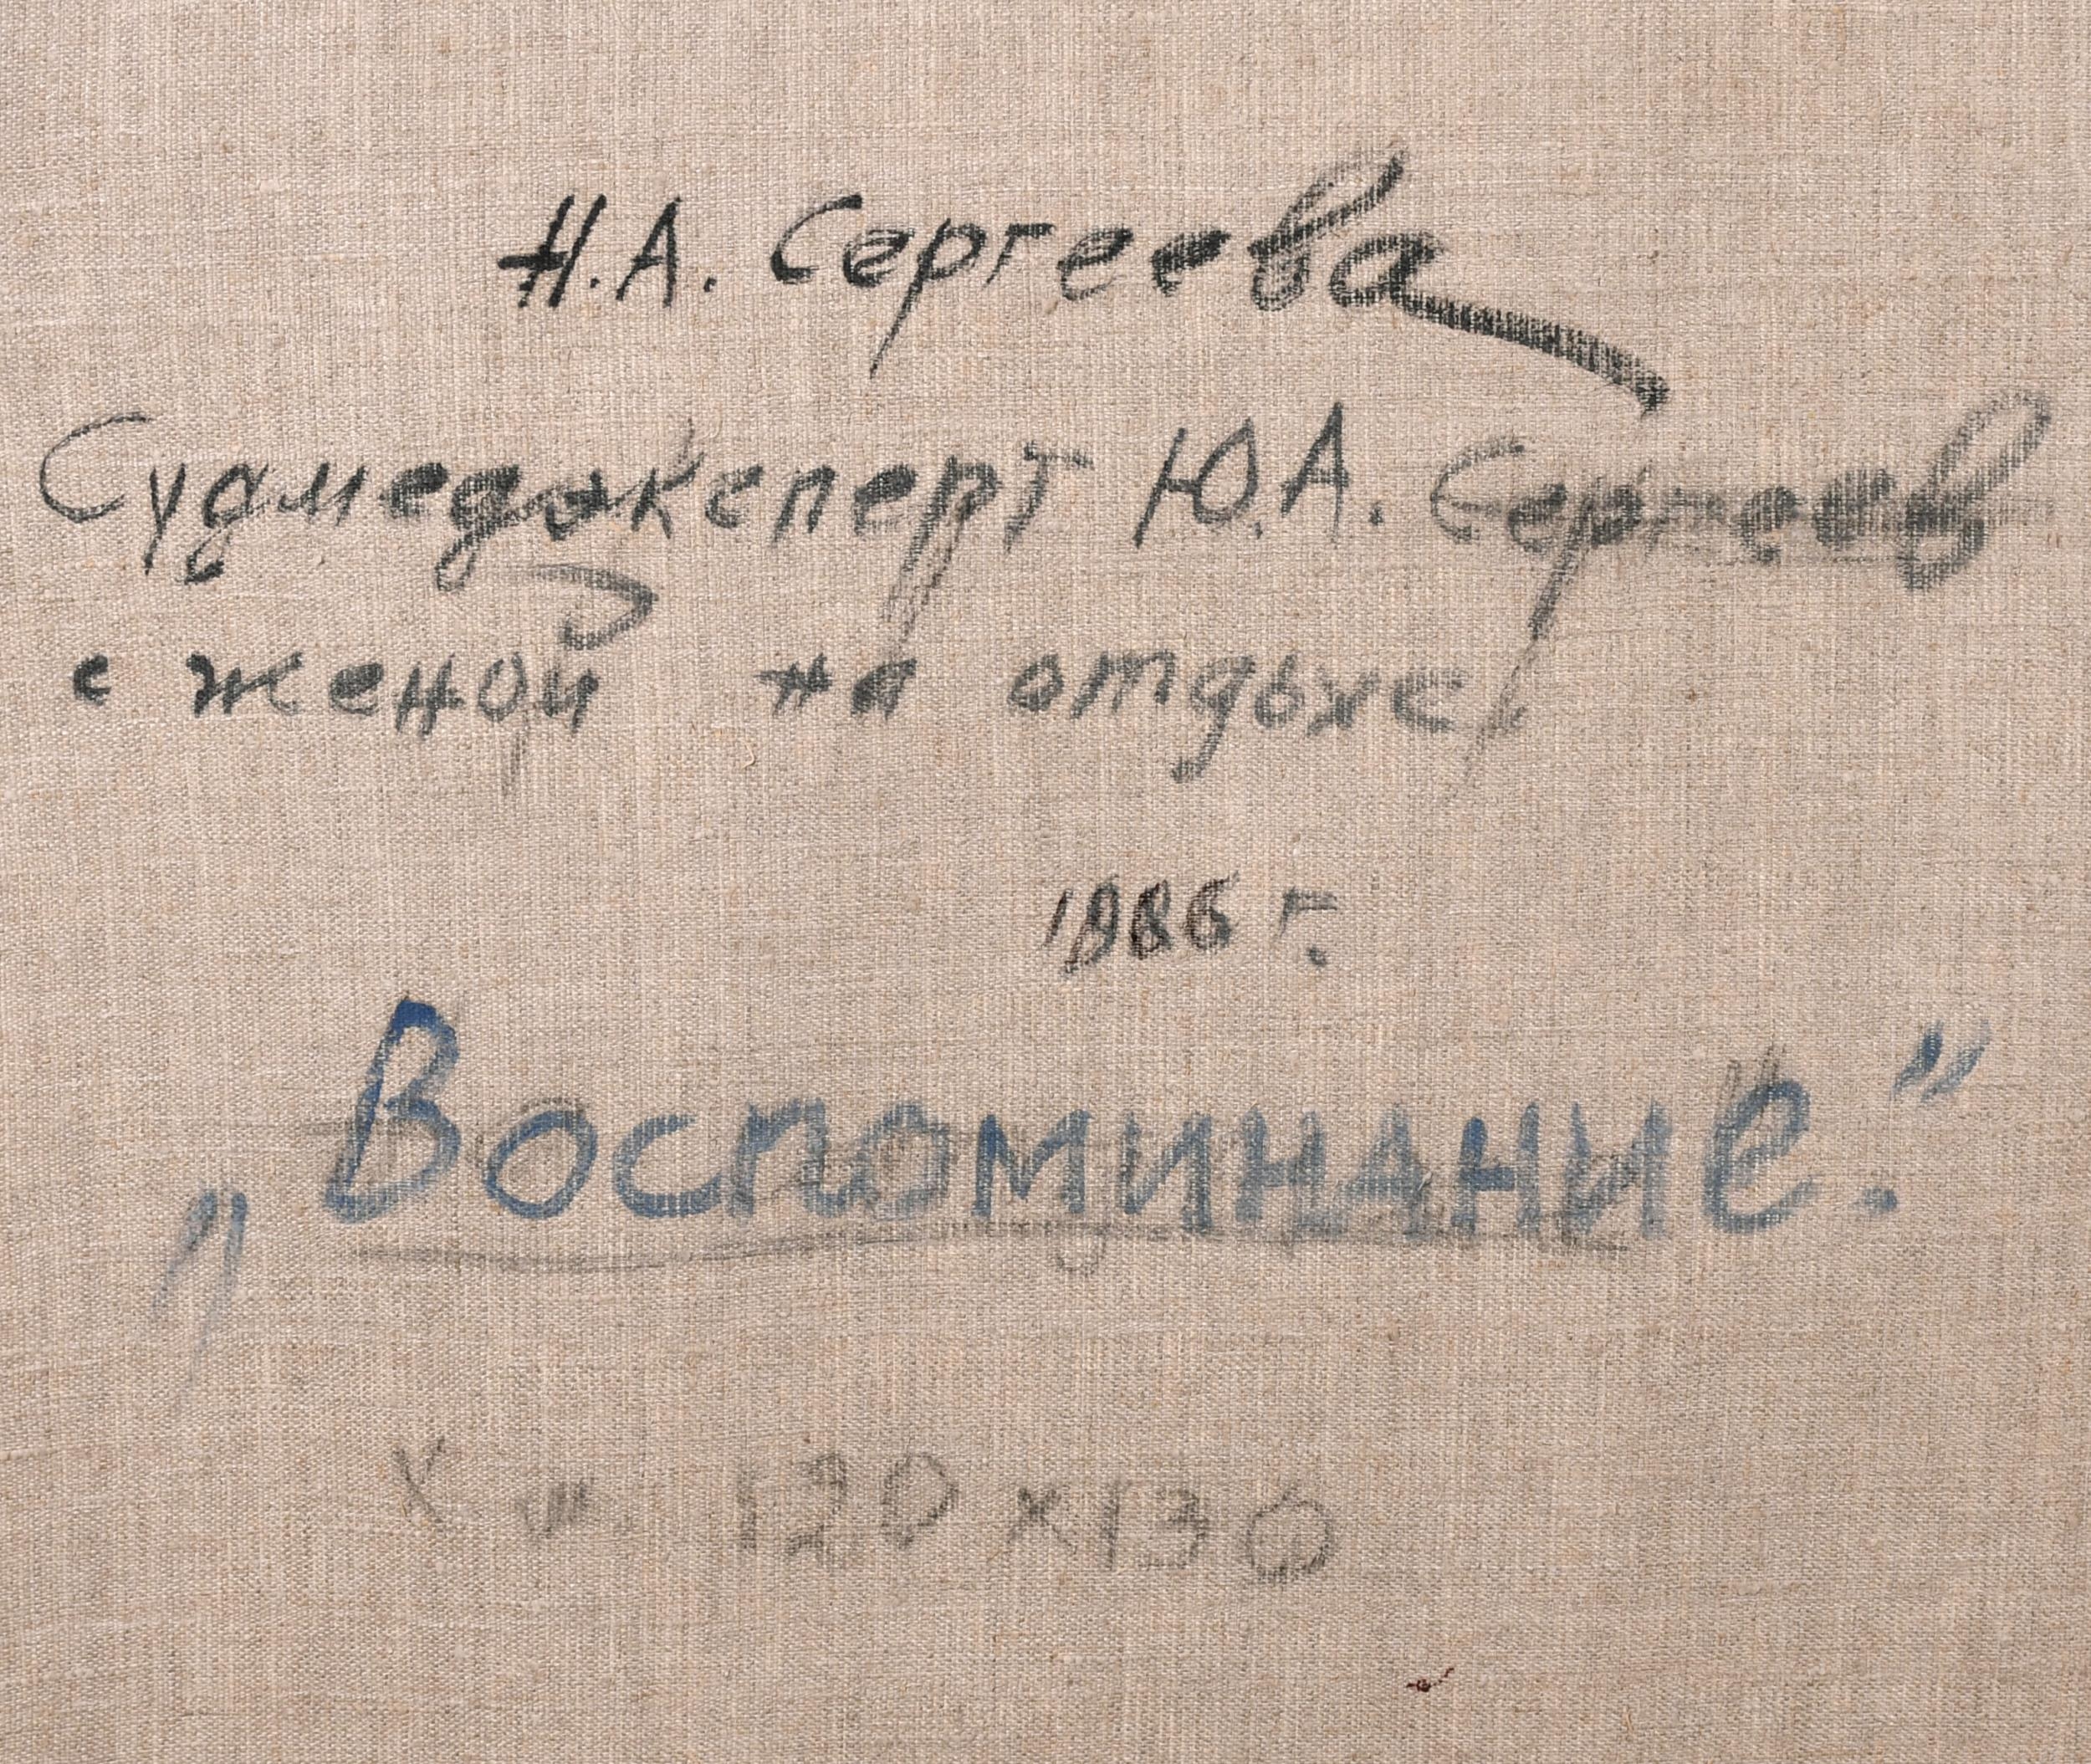 Н.А. Сергеева
Судмедэксперт Ю.А. Сергеев
с женой на отдыхе.
1986 г.
„Воспоминание."
х м. 120 х 130